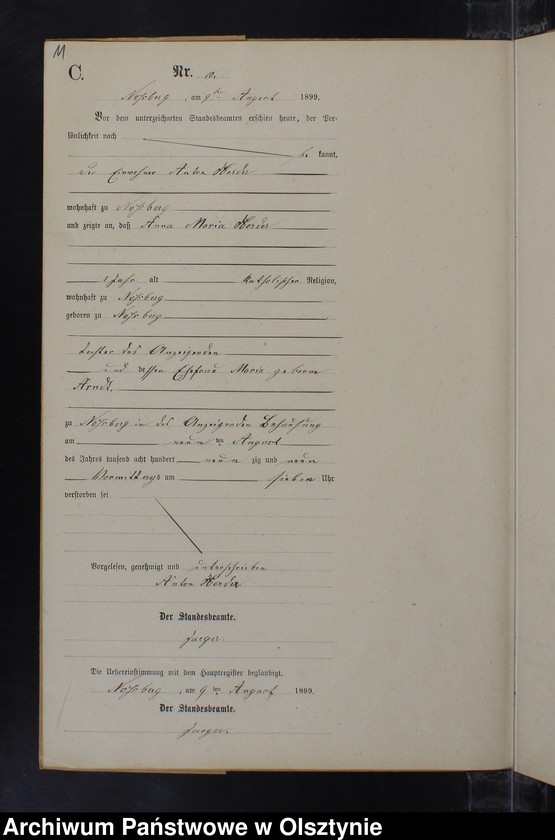 11
C.
Nr.
Noßberg, am 9ten August 1899.
Vor dem unterzeichneten Standesbeamten erschien heute, der Per-
sönlichkeit nach
be kannt,
der Einwohner Anton Herder
wohnhaft zu Noßberg
und zeigte an, daß Anna Maria Herder
1 Jahr alt katholischer Religion,
wohnhaft zu Noßberg
geboren zu Noßberg
Tochter des Anzeigenden
und dessen Ehefrau Maria geborne
Arndt
zu Noßberg in des Anzeigenden Behausung
am neun ten August
des Jahres tausend acht hundert neun zig und neun
Vormittags um sieben Uhr
verstorben sei
Vorgelesen, genehmigt und unterschrieben
Anton Herder
Der Standesbeamte.
Jaeger.
Die Uebereinstimmung mit dem Hauptregister beglaubigt.
Noßberg, am 9 ten August 1899.
Der Standesbeamte.
Jaeger.
Archiwum Państwowe w Olsztynie